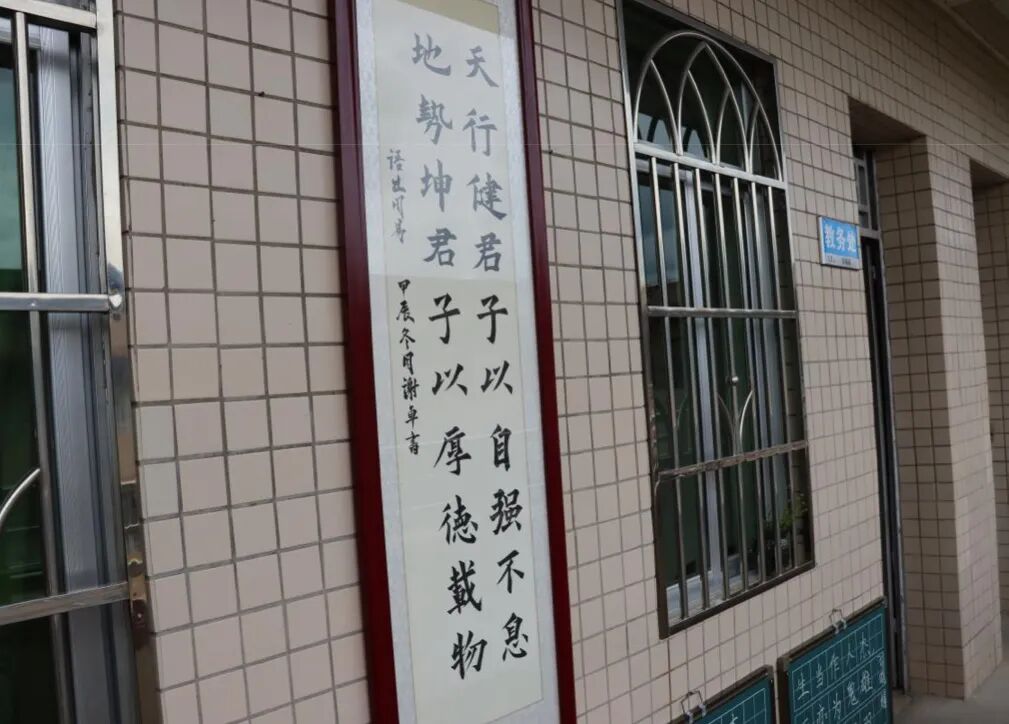 天行健君子以自强不息
地勢坤君子以厚德載物
語出周易
甲辰冬月謝卓書
教务处
生当作人杰